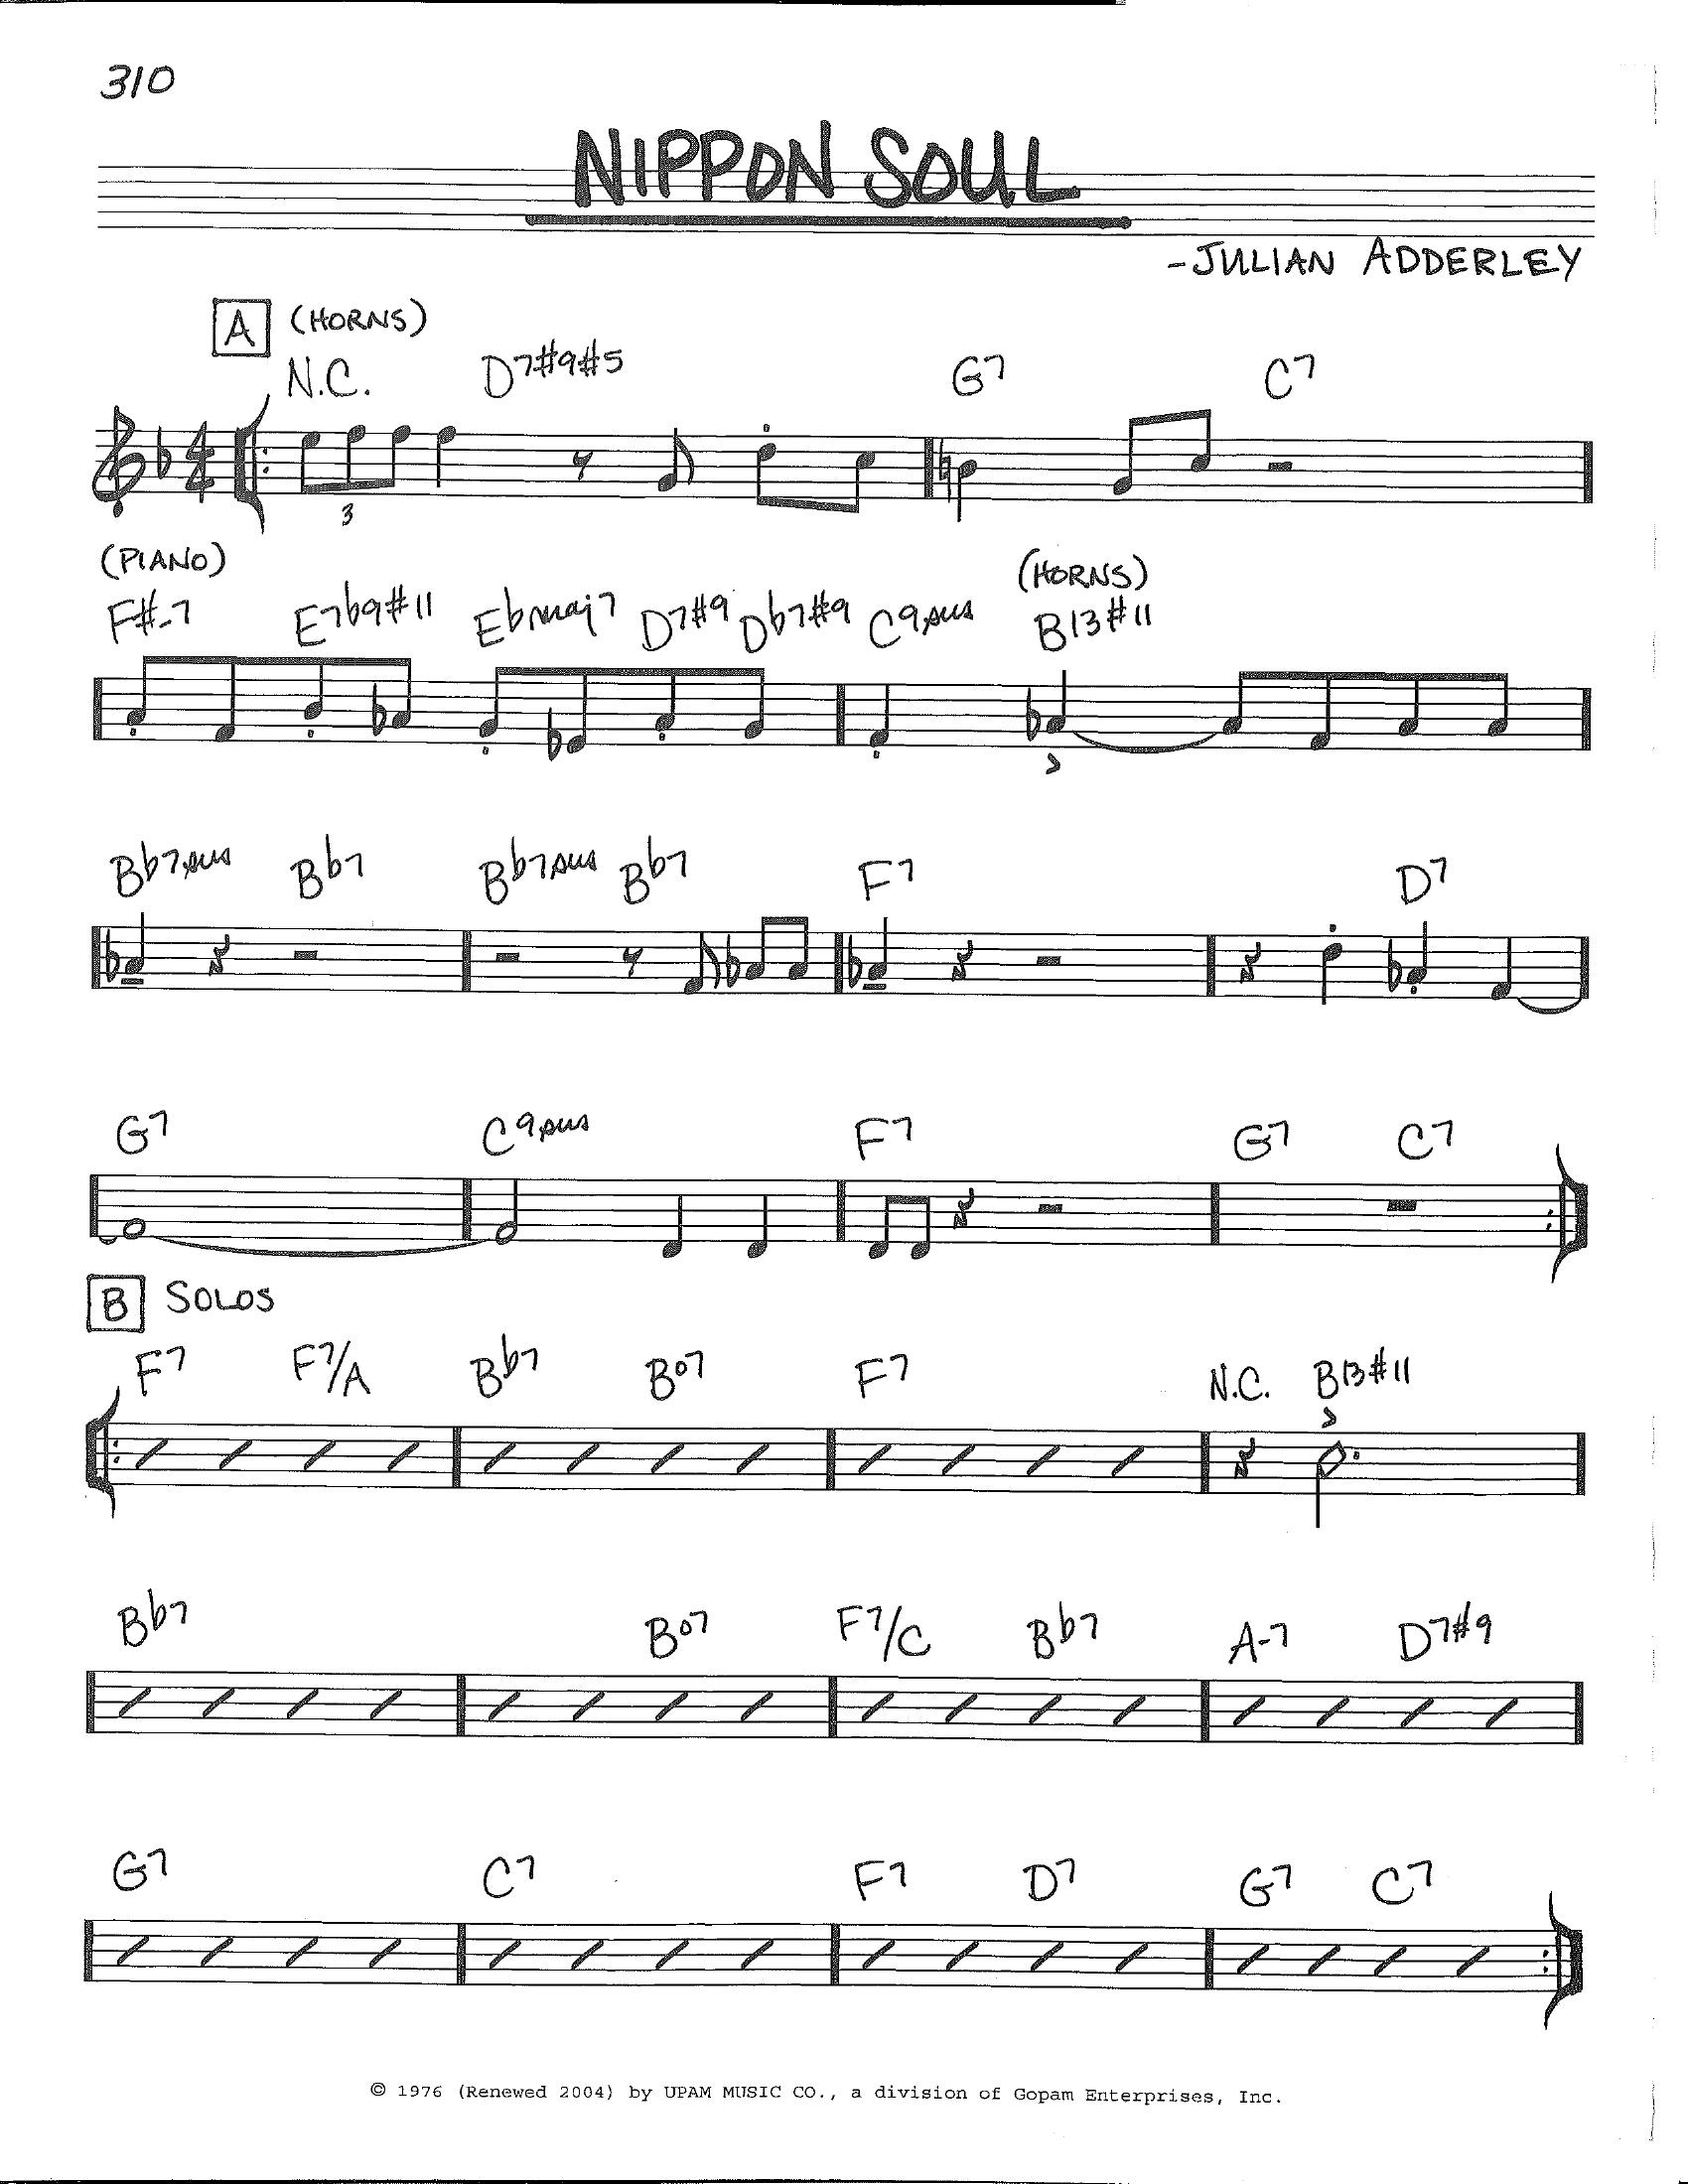 310
NIPPON SOUL
-JULIAN ADDERLEY
A (HORNS)
N.C. D7#9#5 G7 C7
3
(PIANO) (HORNS)
F#-7 E7b9#11 Ebmaj7 D7#9 Db7#9 C9sus B13#11
Bb7sus Bb7 Bb7sus Bb7 F7 D7
G7 C9sus F7 G7 C7
B SOLOS
F7 F7/A Bb7 Bo7 F7 N.C. B13#11
Bb7 Bo7 F7/C Bb7 A-7 D7#9
G7 C7 F7 D7 G7 C7
© 1976 (Renewed 2004) by UPAM MUSIC CO., a division of Gopam Enterprises, Inc.